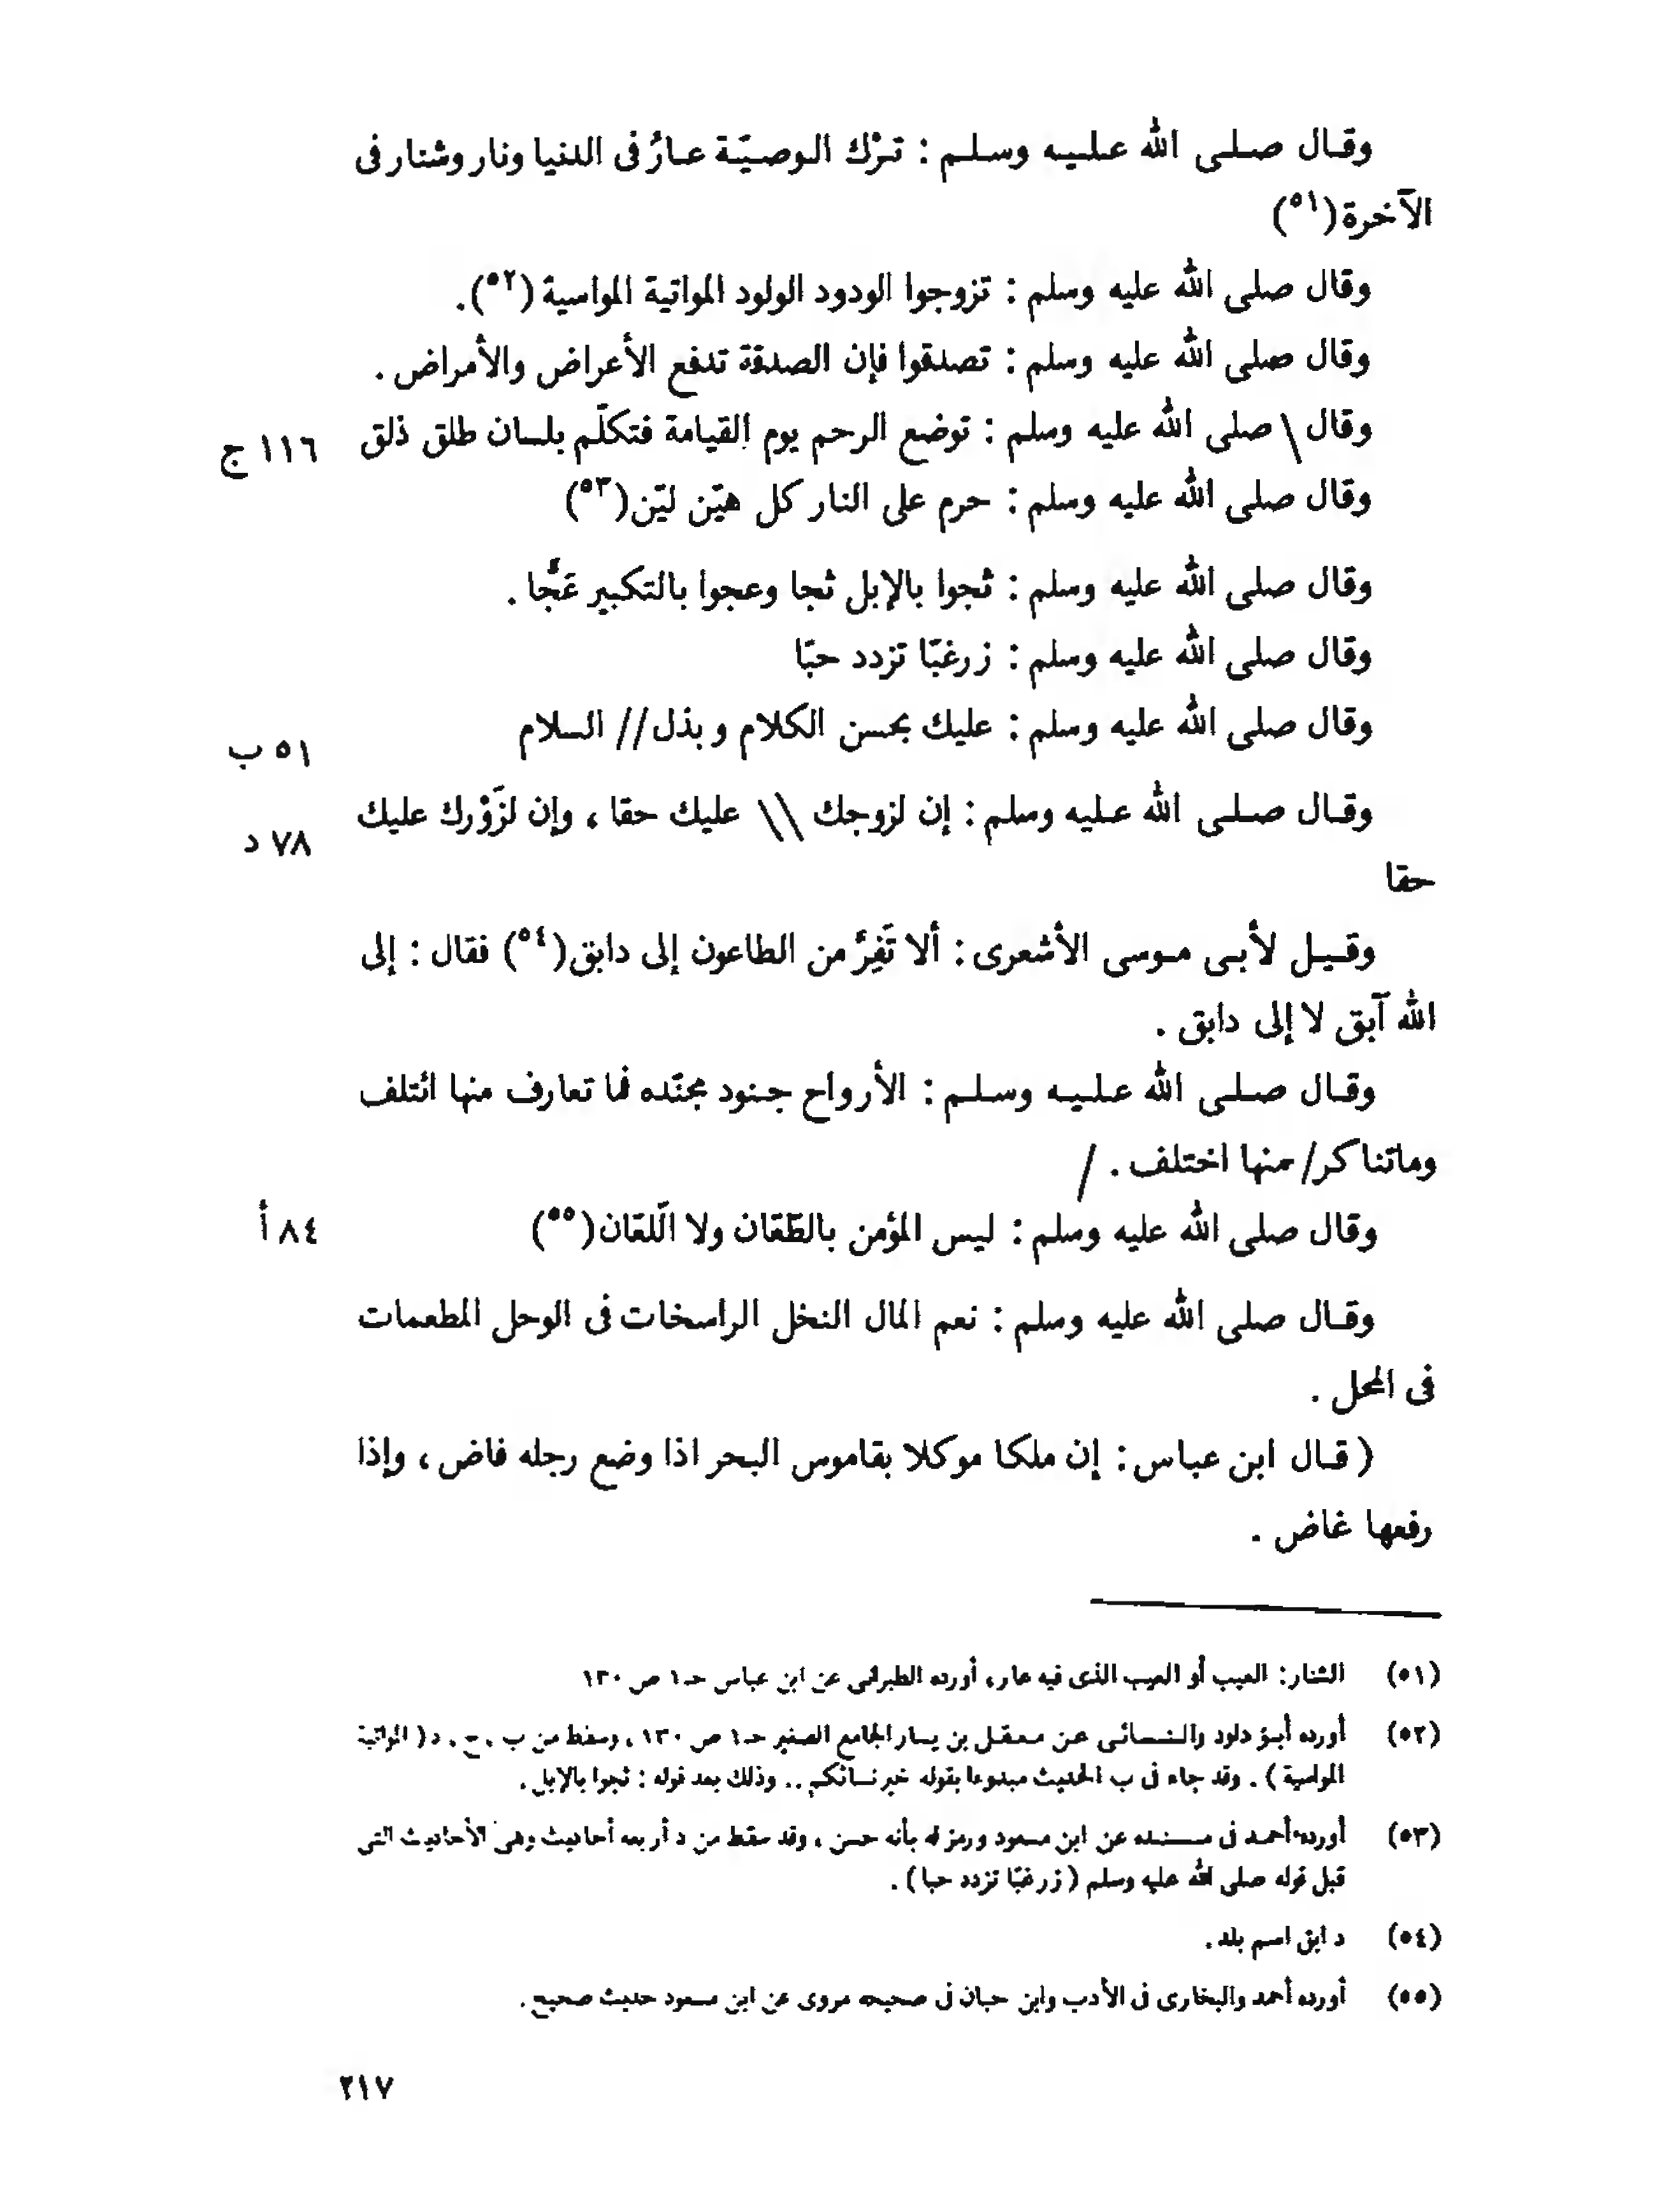 وقال صلى الله عليه وسلم : ترْك الوصيّة عارٌ فى الدنيا ونار وشنار فى
الآخرة(٥١)
وقال صلى الله عليه وسلم : تزوجوا الودود الولود المواتية المواسية (٥٢).
وقال صلى الله عليه وسلم : تصدقوا فإن الصدقة تدفع الأعراض والأمراض .
وقال \ صلى الله عليه وسلم : توضع الرحم يوم القيامة فتكلّم بلسان طلق ذلق ١١٦ ج
وقال صلى الله عليه وسلم : حرم على النار كل هيّن ليّن(٥٣)
وقال صلى الله عليه وسلم : ثجوا بالإبل ثجا وعجوا بالتكبير عَجًّا .
وقال صلى الله عليه وسلم : زرغبّا تزدد حبّا
وقال صلى الله عليه وسلم : عليك بحسن الكلام وبذل // السلام ٥١ ب
وقال صلى الله عليه وسلم : إن لزوجك \\ عليك حقا ، وإن لزَوْرك عليك ٧٨ د
حقا
وقيل لأبى موسى الأشعرى : ألا تَفِرُّ من الطاعون إلى دابق(٥٤) فقال : إلى
الله آبق لا إلى دابق .
وقال صلى الله عليه وسلم : الأرواح جنود مجنّده فما تعارف منها ائتلف
وماتناكر/ منها اختلف . /
وقال صلى الله عليه وسلم : ليس المؤمن بالطّعّان ولا الّلعّان(٥٥) ٨٤ أ
وقال صلى الله عليه وسلم : نعم المال النخل الراسخات فى الوحل المطعمات
فى المحل .
( قال ابن عباس : إن ملكا موكلا بقاموس البحر اذا وضع رجله فاض ، وإذا
رفعها غاض .
(٥١) الشنار: العيب أو العيب الذى فيه عار، أورده الطبرانى عن ابن عباس حـ١ ص ١٣٠
(٥٢) أورده أبو داود والنسائى عن معقل بن يسار الجامع الصغير حـ١ ص ١٣٠ ، وسقط من ب ، ج ، د ( المواتية
المواسية ) . وقد جاء فى ب الحديث مبدوءا بقوله خير نسائكم .. وذلك بعد قوله : ثجوا بالإبل .
(٥٣) أورده أحمد فى مسنده عن ابن مسعود ورمز له بأنه حسن ، وقد سقط من د أربعه أحاديث وهى الأحاديث التى
قبل قوله صلى الله عليه وسلم ( زرغبّا تزدد حبا ) .
(٥٤) دابق اسم بلد .
(٥٥) أورده أحمد والبخارى فى الأدب وابن حبان فى صحيحه مروى عن ابن مسعود حديث صحيح .
٢١٧